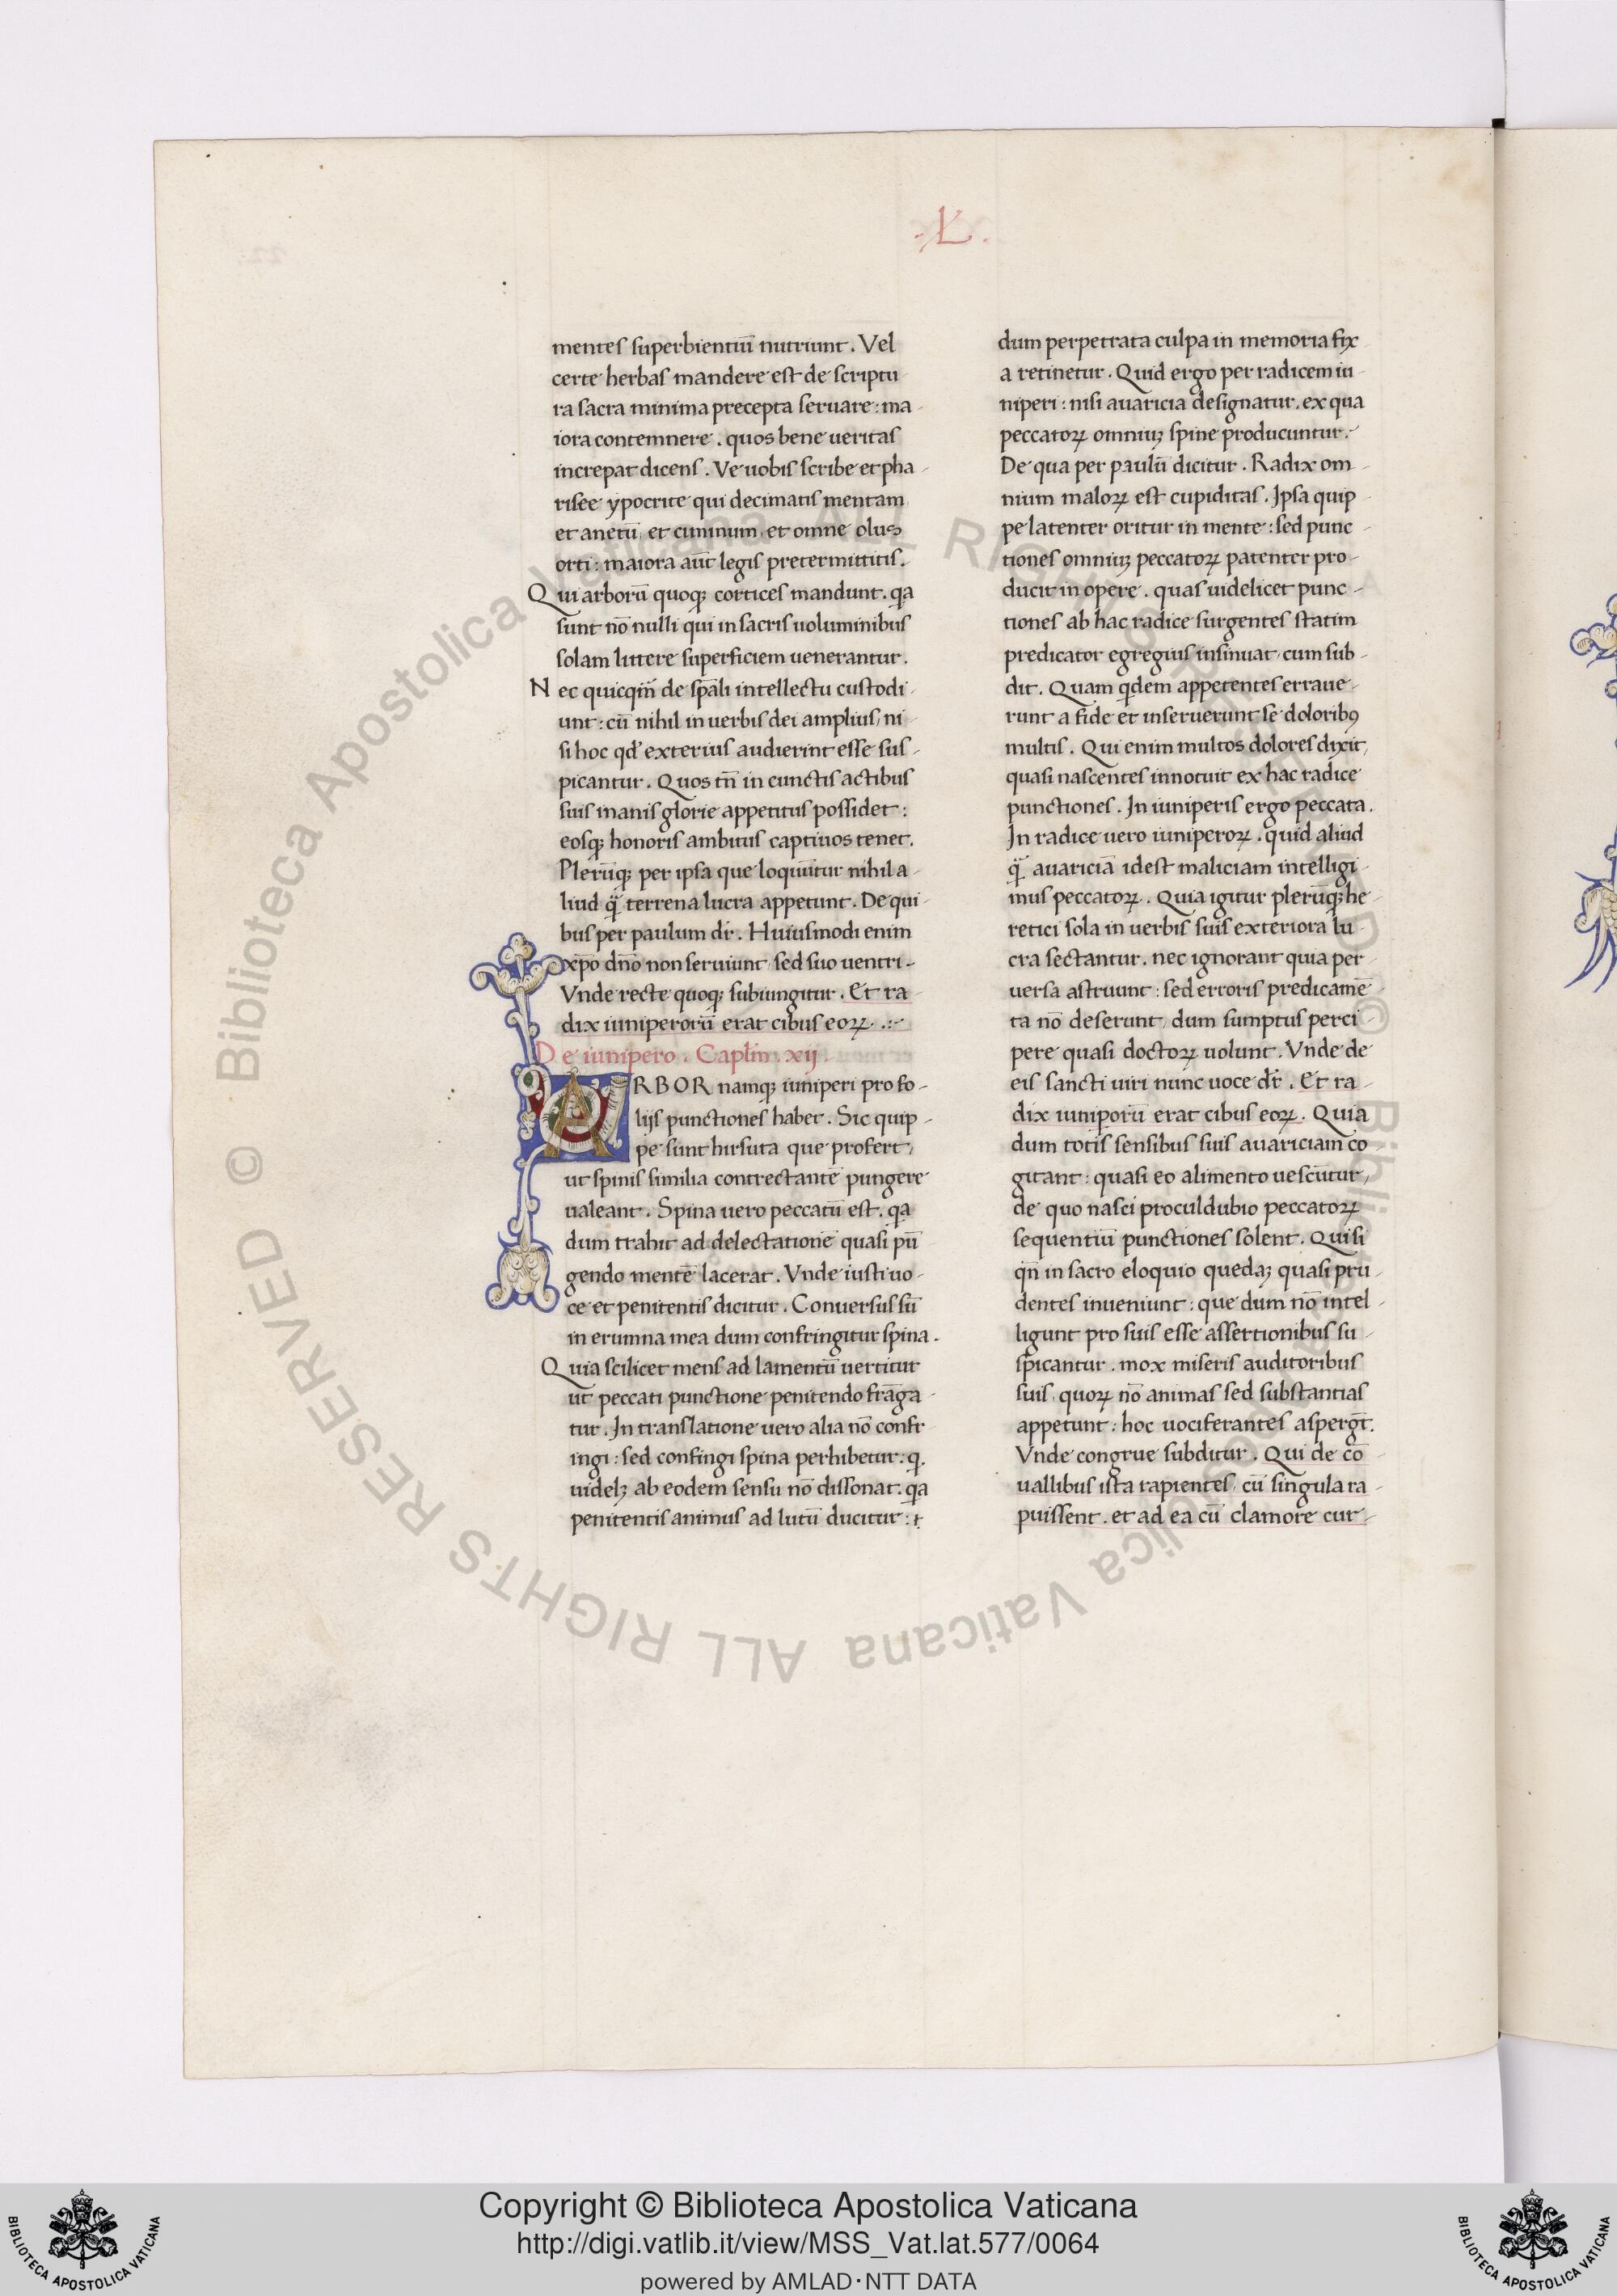 .L.
mentes superbientiū nutriunt. Vel
certe herbas mandere est de scriptu-
ra sacra minima precepta seruare: ma-
iora contemnere. quos bene ueritas
increpat dicens. Ve uobis scribe et pha-
risee ypocrite qui decimatis mentam
et anetū, et ciminum, et omne olus
orti: maiora aūt legis pretermittitis.
Qui arborū quoqꝫ cortices mandunt. qa
sunt nō nulli qui in sacris uoluminibus
solam littere superficiem uenerantur.
Nec quicqm̄ de spāli intellectu custodi-
unt: cū nihil in uerbis dei amplius, ni-
si hoc qd̄ exterius audierint esse sus-
picantur. Quos tn̄ in cunctis actibus
suis inanis glorie appetitus possidet:
eosqꝫ honoris ambitus captiuos tenet.
Plerūqꝫ per ipsa que loquūtur nihil a-
liud q̄ terrena lucra appetunt. De qui-
bus per paulum dr̄. Huiusmodi enim
xp̄o dn̄o non seruiunt, sed suo uentri.
Vnde recte quoqꝫ subiungitur. Et ra-
dix iuniperorū erat cibus eoꝝ.
De iunipero. Capl̄m. xij.
ARBOR namqꝫ iuniperi pro fo-
lijs punctiones habet. Sic quip-
pe sunt hirsuta que profert,
ut spinis similia contrectantē pungere
ualeant. Spina uero peccatū est. qa
dum trahit ad delectationē quasi pū
gendo mentē lacerat. Vnde iusti uo-
ce et penitentis dicitur. Conuersus sū
in erumna mea dum confringitur spina.
Quia scilicet mens ad lamentū uertitur
ut peccati punctione penitendo frāga-
tur. In translatione uero alia nō confr
ingi: sed confingi spina perhibetur: q.
uidelꝫ ab eodem sensu nō dissonat. qa
penitentis animus ad lutū ducitur: ⁊
dum perpetrata culpa in memoria fix
a retinetur. Quid ergo per radicem iu-
niperi: nisi auaricia designatur. ex qua
peccatoꝝ omniuꝫ spine producuntur.
De qua per paulū dicitur. Radix om-
nium maloꝝ est cupiditas. Ipsa quip-
pe latenter oritur in mente: sed punc-
tiones omniuꝫ peccatoꝝ patenter pro-
ducit in opere. quas uidelicet punc-
tiones ab hac radice surgentes statim
predicator egregius insinuat, cum sub-
dit. Quam qdem appetentes erraue-
runt a fide et inseruerunt se doloribꝰ
multis. Qui enim multos dolores dixit,
quasi nascentes innotuit ex hac radice
punctiones. In iuniperis ergo peccata.
In radice uero iuniperoꝝ. quid aliud
q̄ auariciā idest maliciam intelligi-
mus peccatoꝝ. Quia igitur plerūqꝫ he-
retici sola in uerbis suis exteriora lu-
cra sectantur. nec ignorant quia per-
uersa astruunt: sed erroris predicamē
ta nō deserunt, dum sumptus perci-
pere quasi doctoꝝ uolunt. Vnde de
eis sancti uiri nunc uoce dr̄. Et ra-
dix iuniporū erat cibus eoꝝ. Quia
dum totis sensibus suis auariciam co-
gitant: quasi eo alimento uescūtur,
de quo nasci proculdubio peccatoꝝ
sequentiū punctiones solent. Qui si
qn̄ in sacro eloquio quedaꝫ quasi pru-
dentes inueniunt: que dum nō intel-
ligunt pro suis esse assertionibus su-
spicantur. mox miseris auditoribus
suis, quoꝝ nō animas sed substantias
appetunt: hoc uociferantes aspergt̄.
Vnde congrue subditur. Qui de cō
uallibus ista rapientes, cū singula ra-
puissent. et ad ea cū clamore cur-
© Biblioteca Apostolica Vaticana ALL RIGHTS RESERVED © Biblioteca Apostolica Vaticana ALL RIGHTS RESERVED
BIBLIOTECA APOSTOLICA VATICANA
Copyright © Biblioteca Apostolica Vaticana
http://digi.vatlib.it/view/MSS_Vat.lat.577/0064
powered by AMLAD·NTT DATA
BIBLIOTECA APOSTOLICA VATICANA